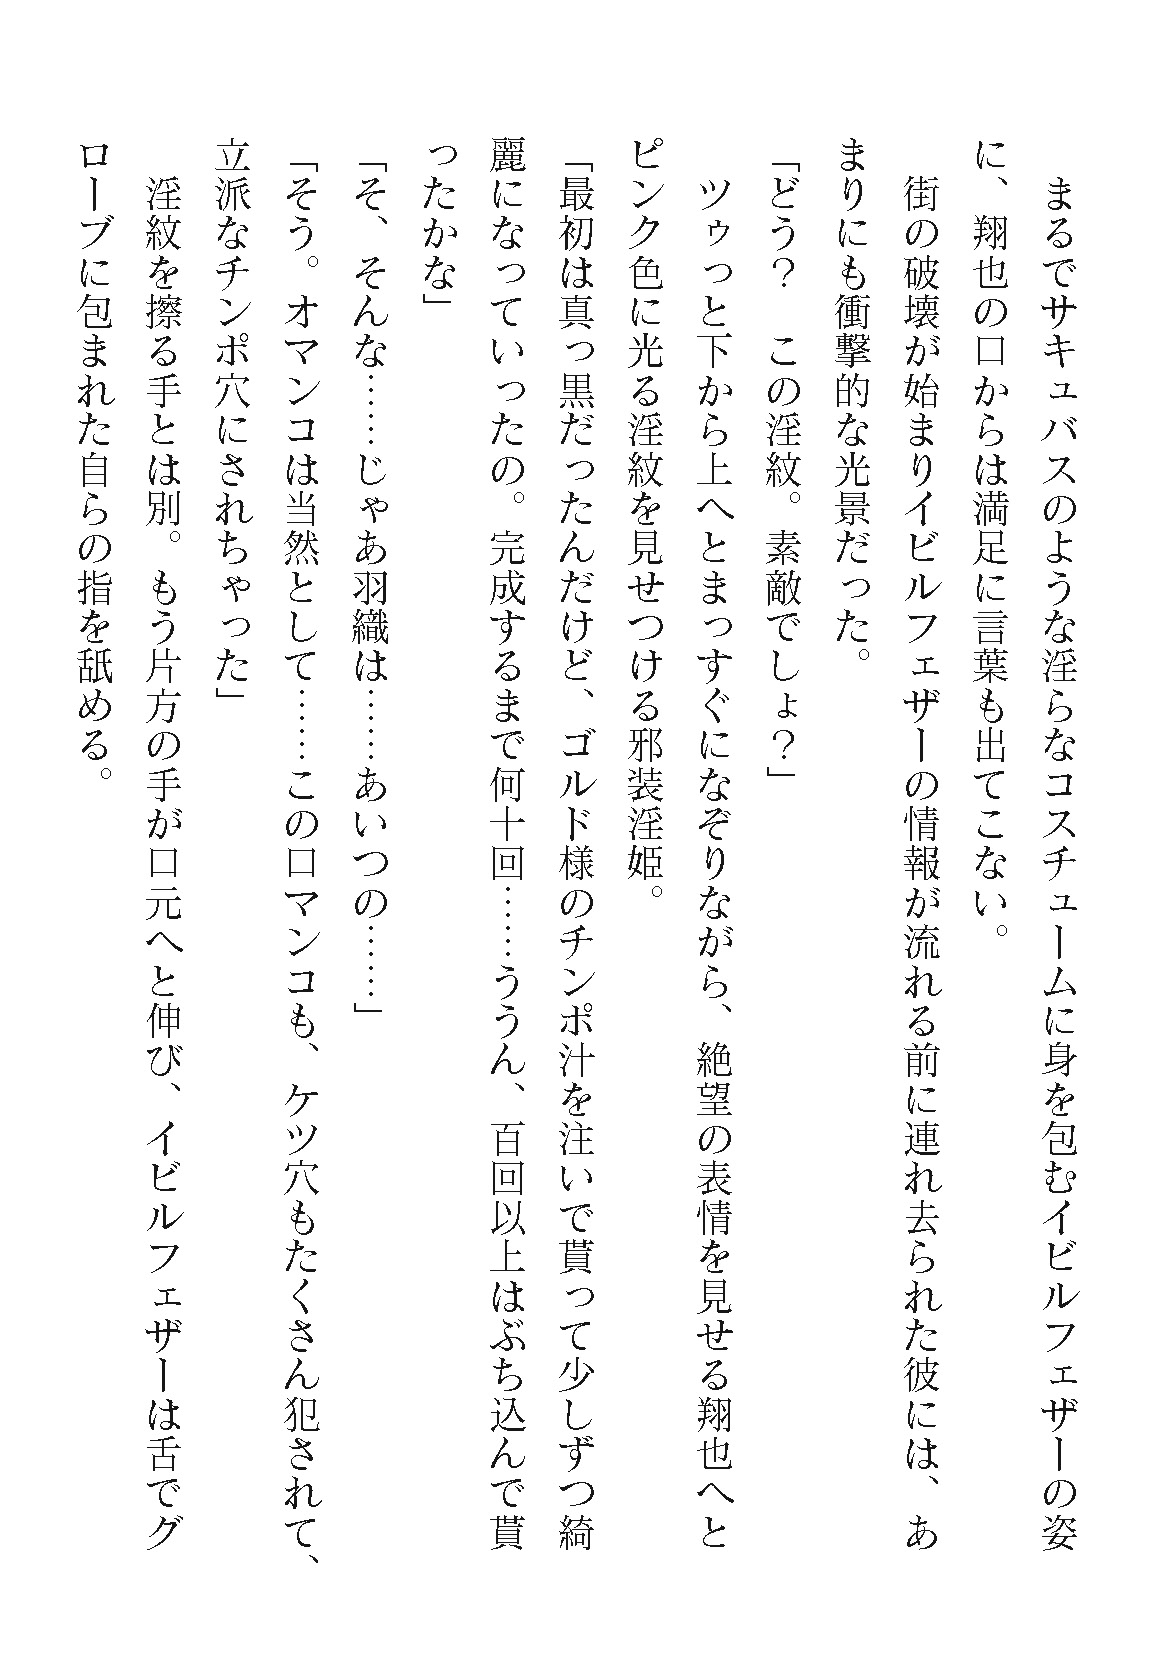 まるでサキュバスのような淫らなコスチュームに身を包むイビルフェザーの姿
に、翔也の口からは満足に言葉も出てこない。
　街の破壊が始まりイビルフェザーの情報が流れる前に連れ去られた彼には、あ
まりにも衝撃的な光景だった。
「どう？　この淫紋。素敵でしょ？」
　ツゥっと下から上へとまっすぐになぞりながら、絶望の表情を見せる翔也へと
ピンク色に光る淫紋を見せつける邪装淫姫。
「最初は真っ黒だったんだけど、ゴルド様のチンポ汁を注いで貰って少しずつ綺
麗になっていったの。完成するまで何十回……ううん、百回以上はぶち込んで貰
ったかな」
「そ、そんな……じゃあ羽織は……あいつの……」
「そう。オマンコは当然として……この口マンコも、ケツ穴もたくさん犯されて、
立派なチンポ穴にされちゃった」
　淫紋を擦る手とは別。もう片方の手が口元へと伸び、イビルフェザーは舌でグ
ローブに包まれた自らの指を舐める。